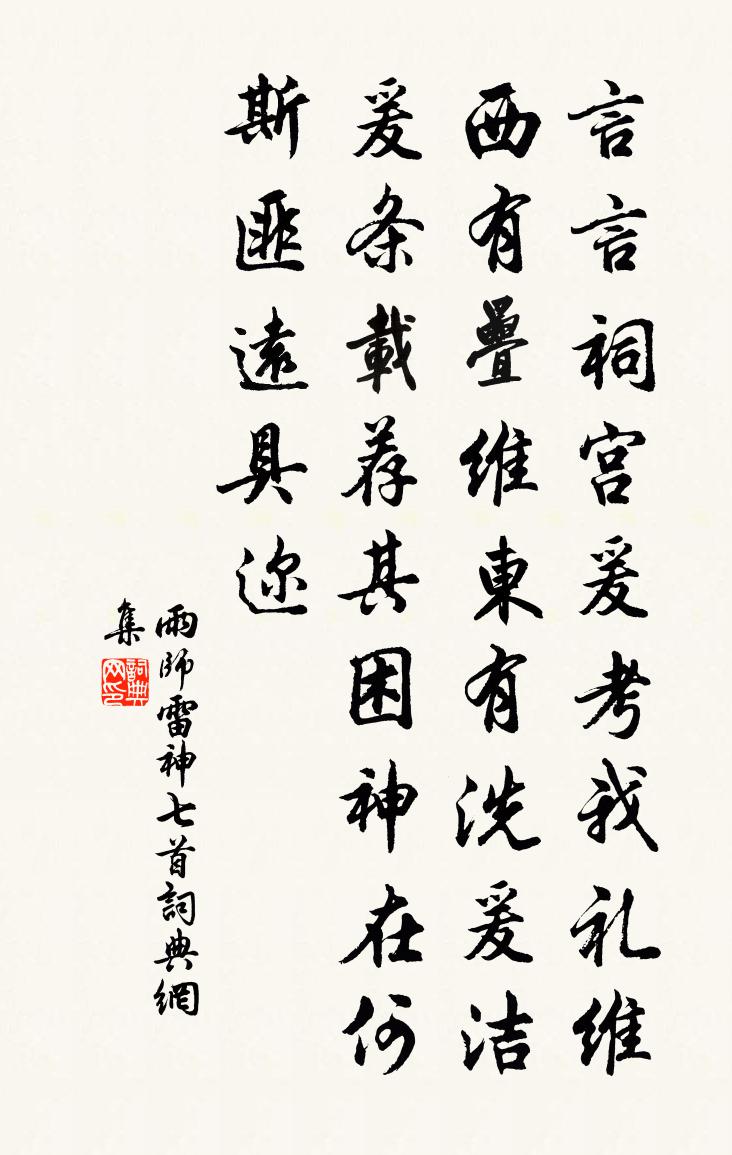 言言祠宫爰考我礼维
西有罍维東有洗爰洁
爰条載荐其困神在何
斯匪遠具迩
雨師雷神七首詞典網
集
詞典
网印